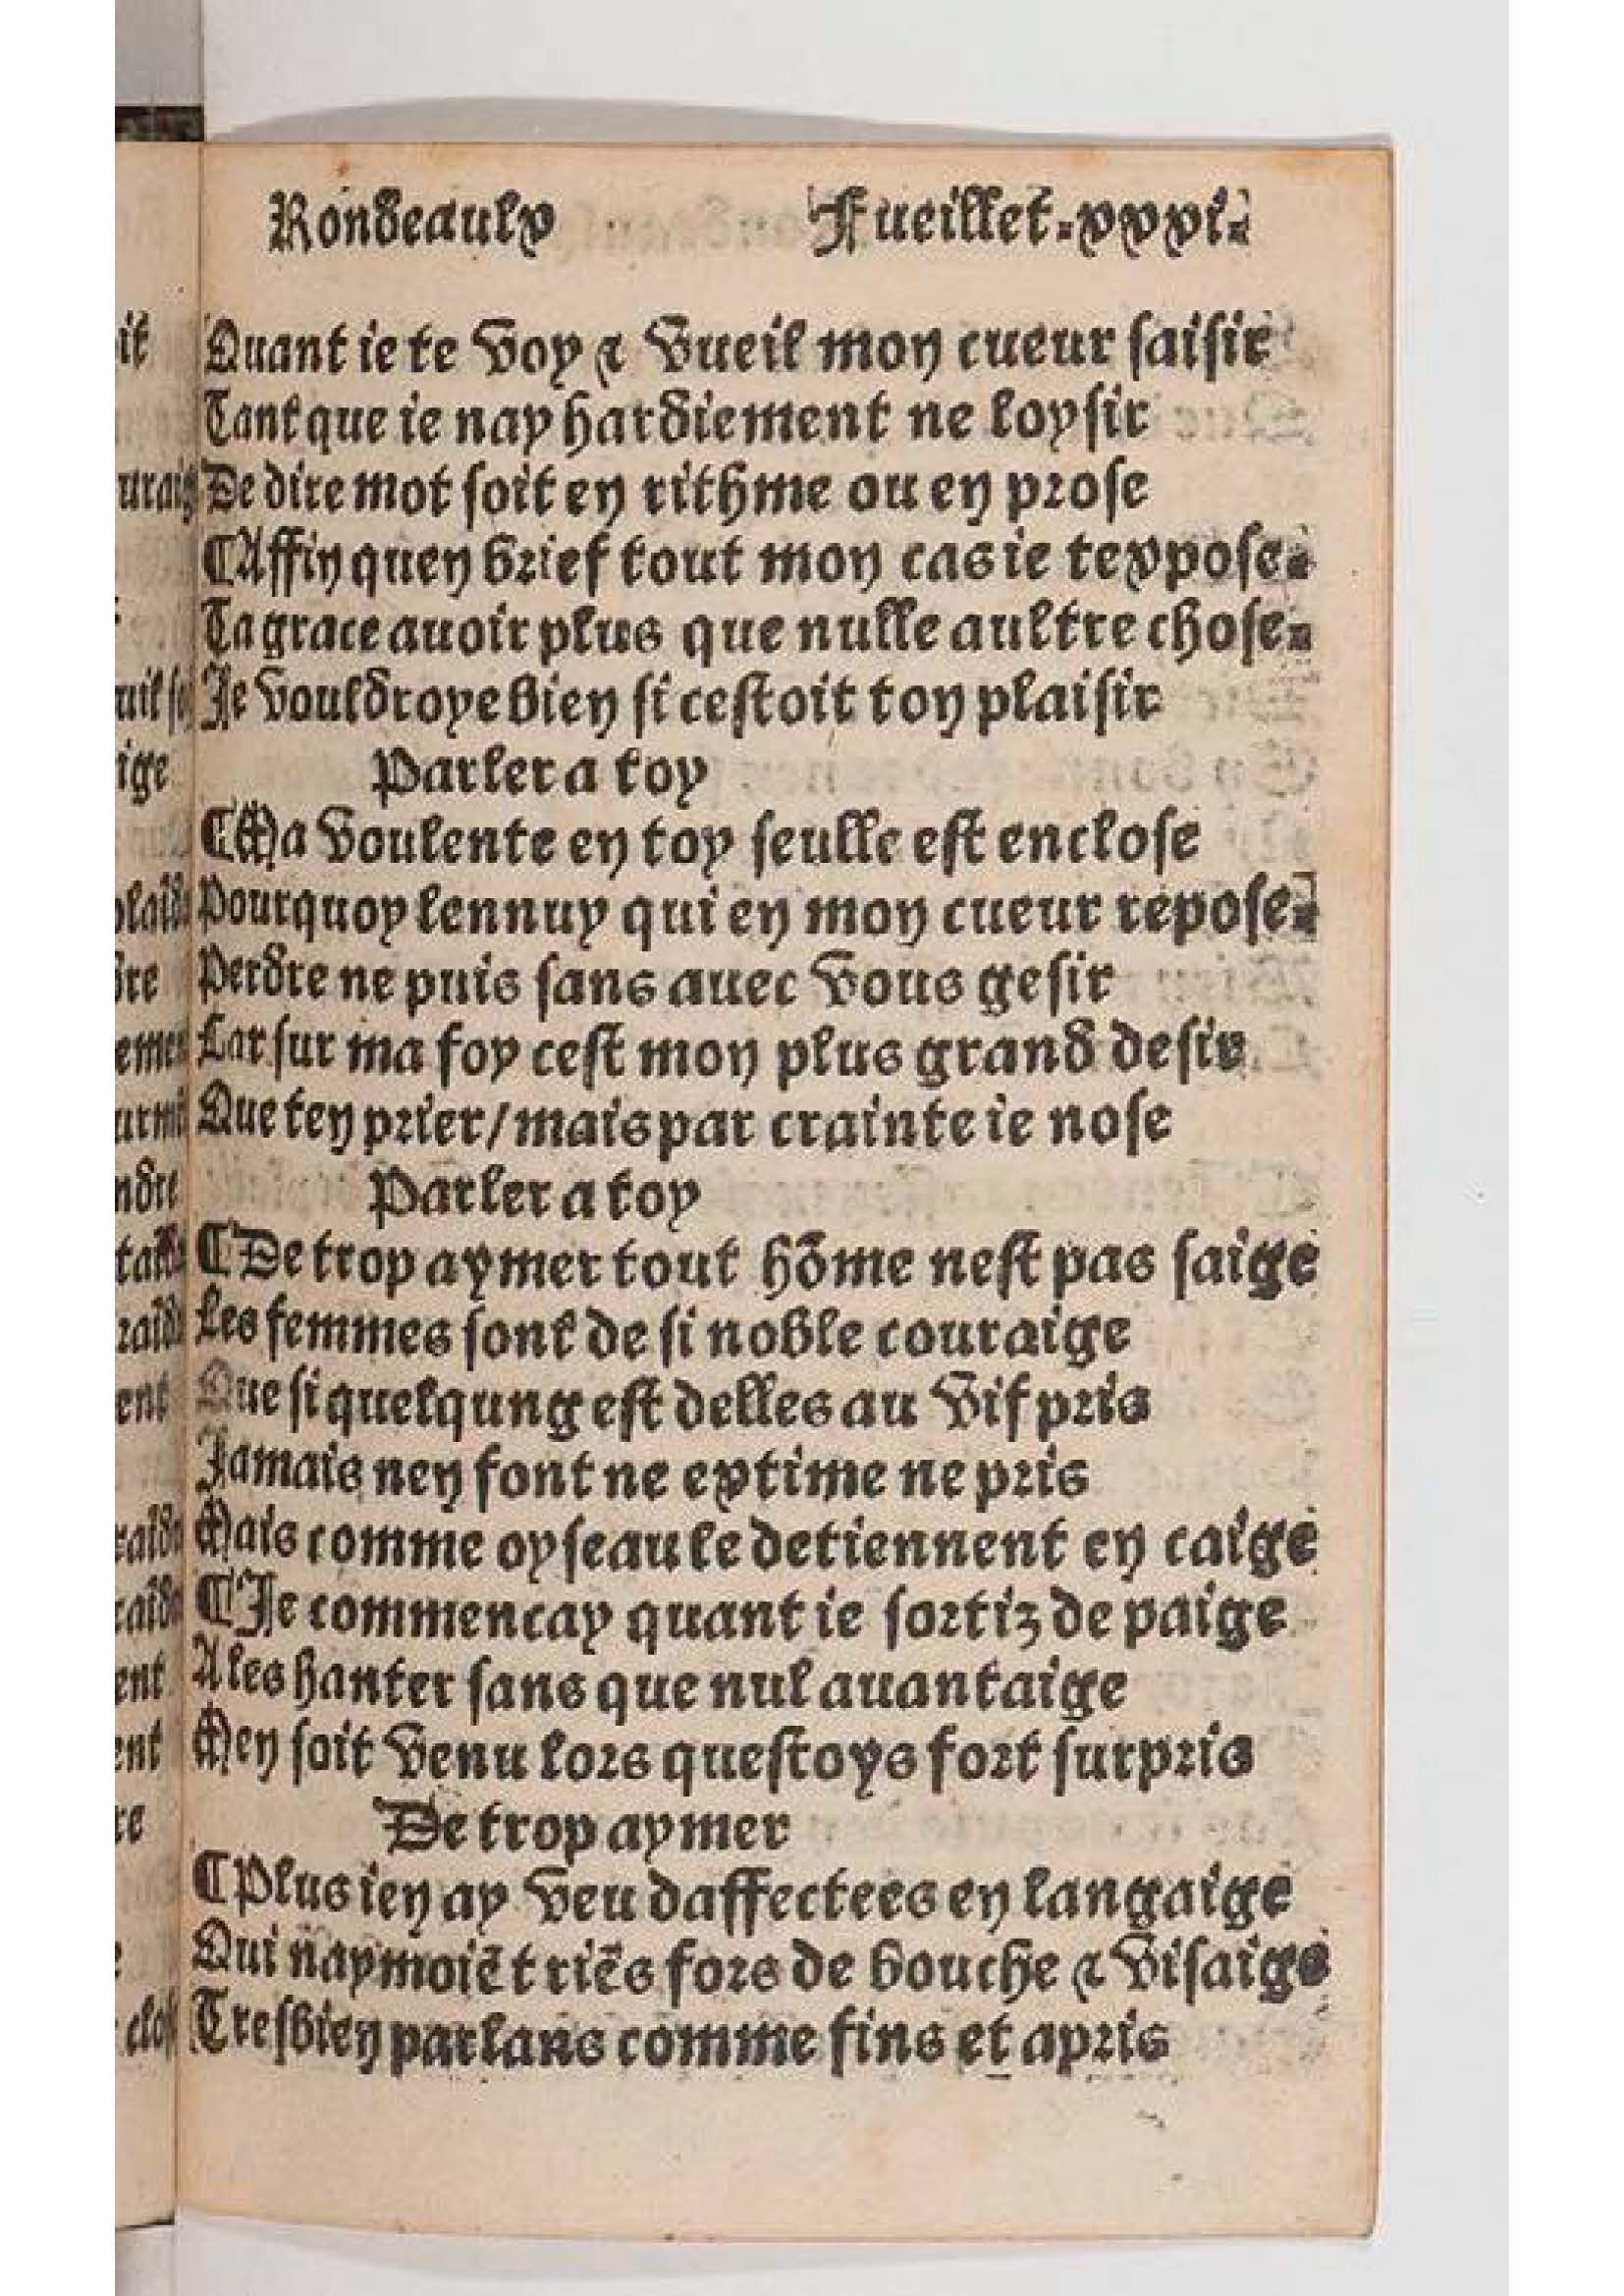 Rondeaulx Fueillet.xxxi.
Quant ie te voy & vueil mon cueur saisir
Tant que ie nay hardiement ne loysir
De dire mot soit en rithme ou en prose
¶Affin quen brief tout mon cas ie texpose.
Ta grace auoir plus que nulle aultre chose.
Je vouldroye bien si cestoit ton plaisir
Parler a toy
¶Ma voulente en toy seulle est enclose
Pourquoy lennuy qui en mon cueur repose.
Perdre ne puis sans auec vous gesir
Car sur ma foy cest mon plus grand desir
Que ten prier/mais par crainte ie nose
Parler a toy
¶De trop aymer tout hõme nest pas saige
Les femmes sont de si noble couraige
Que si quelqung est delles au vif pris
Jamais nen font ne extime ne pris
Mais comme oyseau le detiennent en caige
¶Je commencay quant ie sortiz de paige
A les hanter sans que nul auantaige
Men soit venu lors questoys fort surpris
De trop aymer
¶Plus ien ay veu daffectees en langaige
Qui naymoiẽt riẽs fors de bouche & visaige
Tresbien parlans comme fins et apris